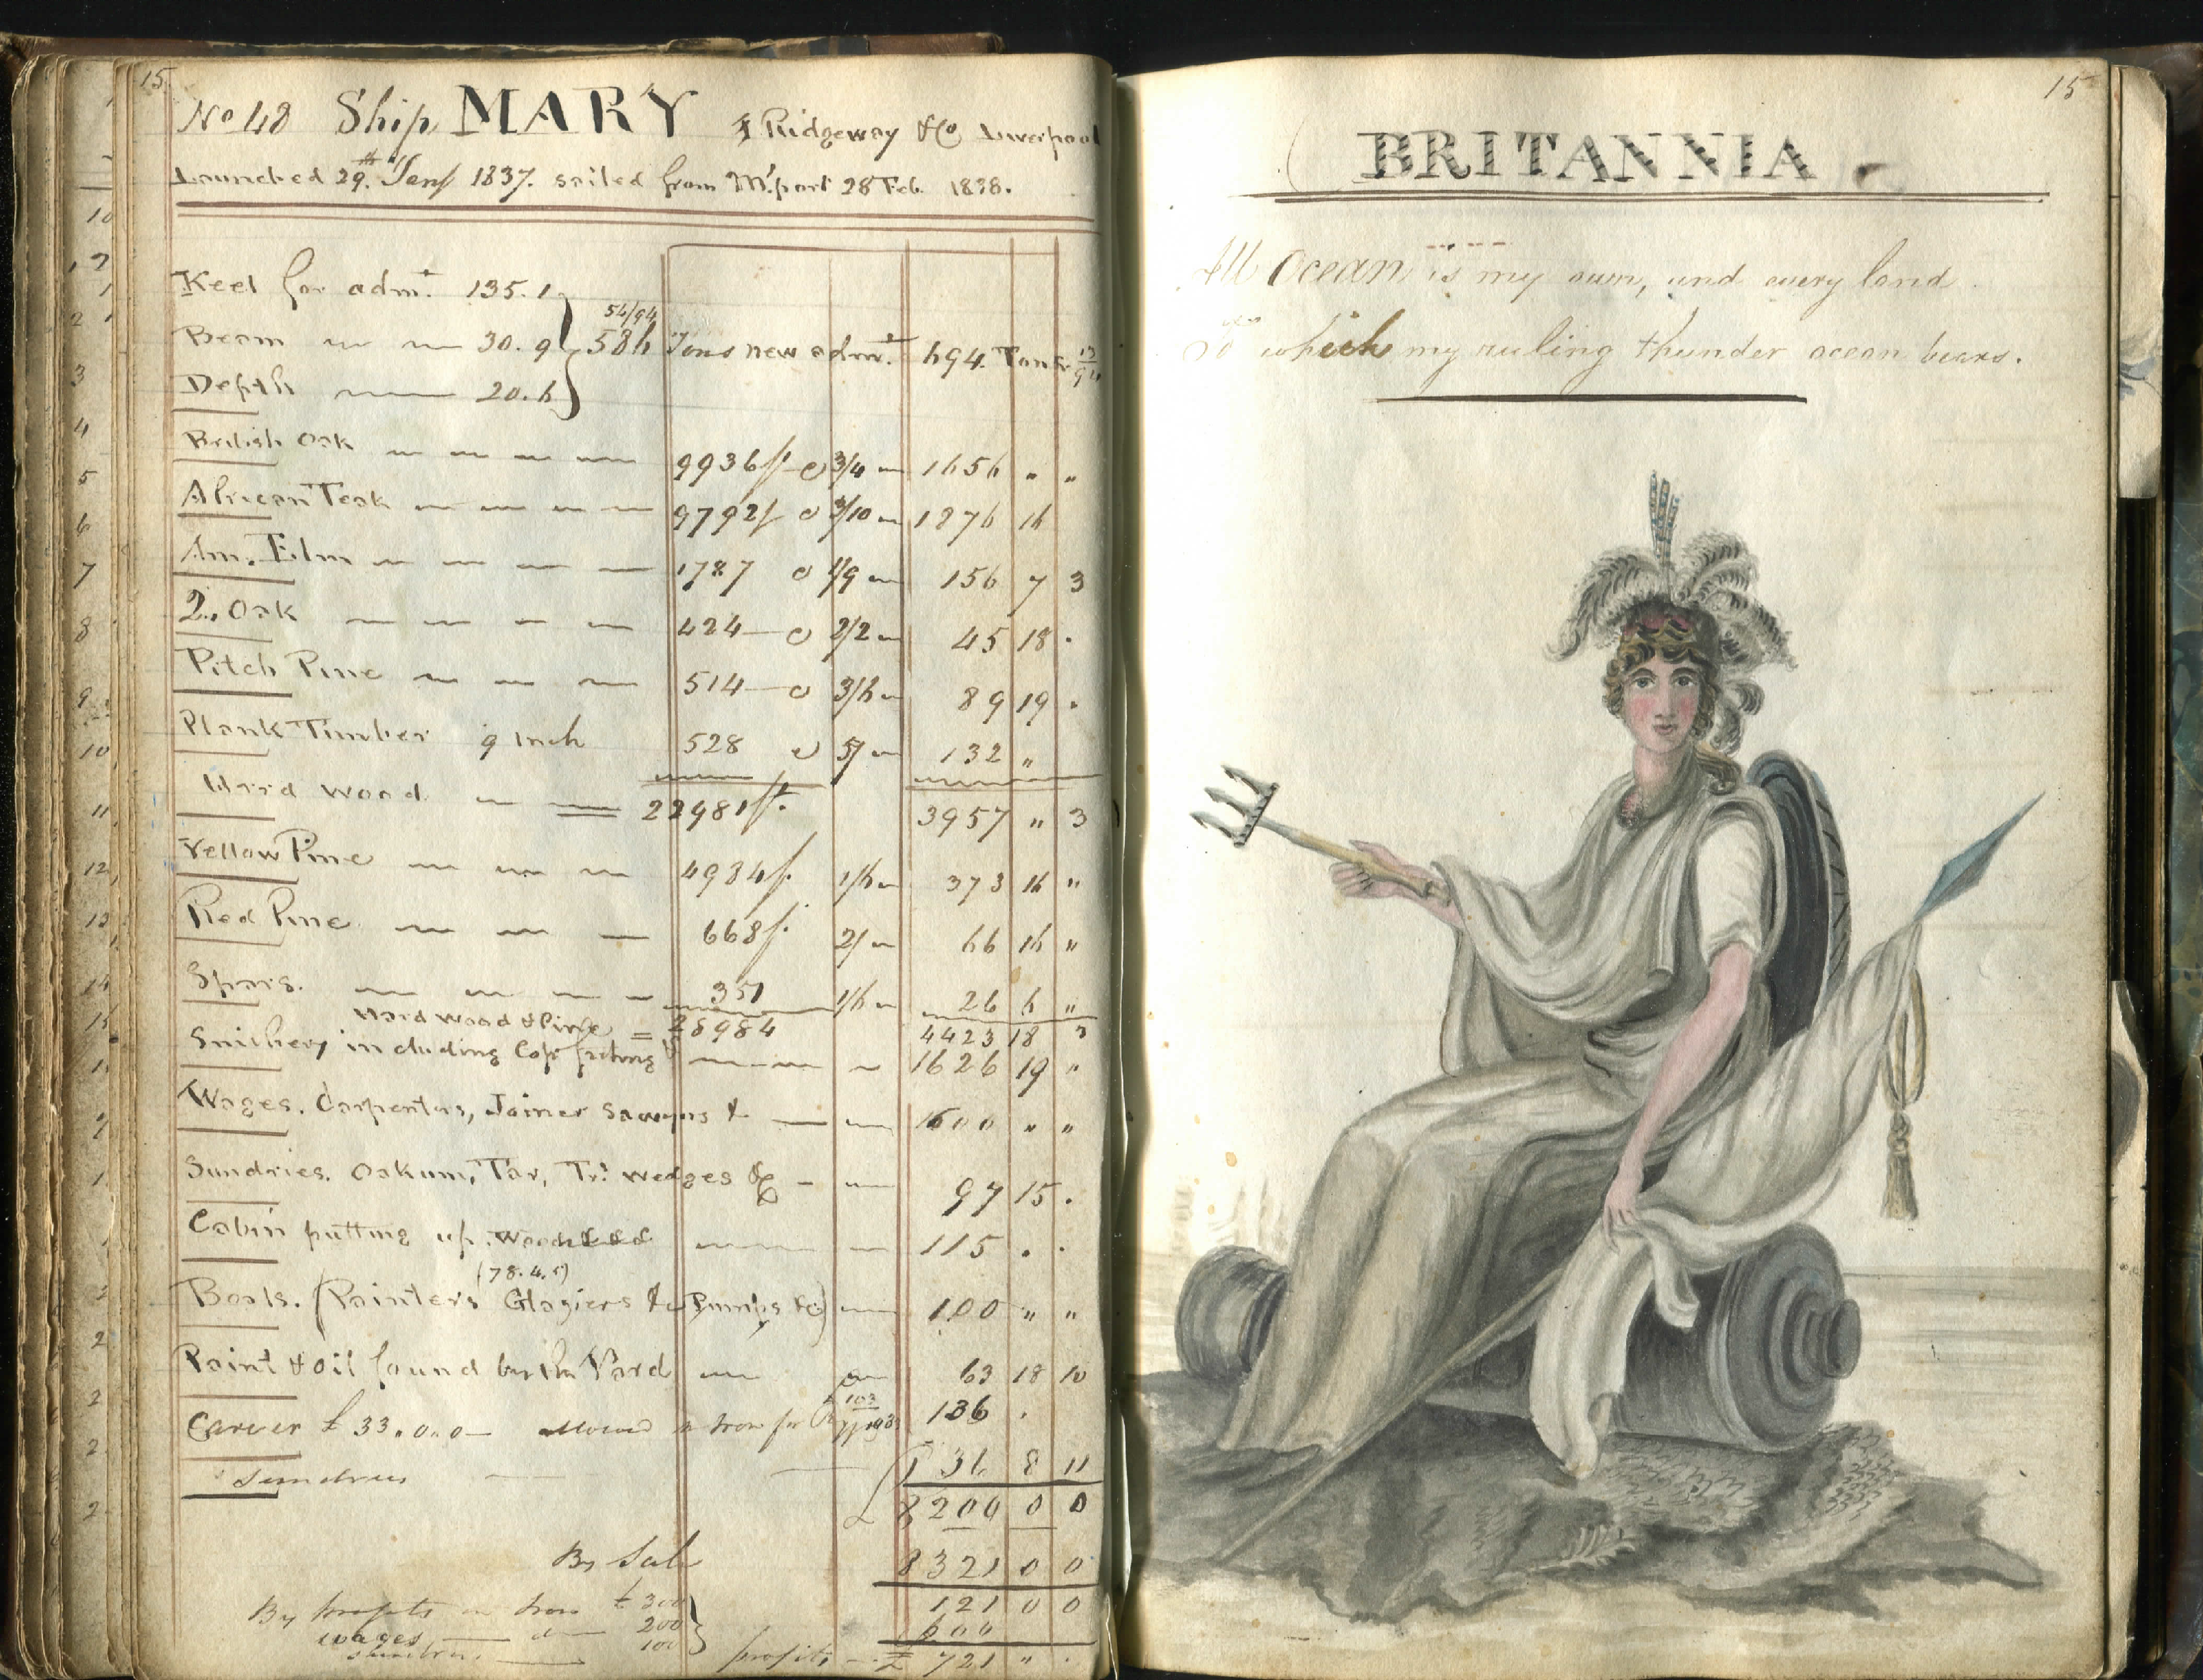 15
No 48 Ship MARY J Ridgeway & Co Liverpool
Launched 29th 1837. sailed from M.port 28 Feb. 1838.
Keel for adm.t 135.1
Beam 30.9
54/94
586 Tons new adm.t 694. Tons
Depth 20.6
British Oak 9936 ft @ 3/4 1656 " "
African Teak 9792 f @ 3/10 1876 16
Am. Elm 1787 @ 1/9 156 7 3
2. Oak 424 @ 2/2 45 18 .
Pitch Pine 514 @ 3/6 89 19 .
Plank Timber 9 Inch 528 @ 5/ 132 "
Hard wood = 22981 ft. 3957 " 3
Yellow Pine 4984 f. 1/6 373 16 "
Red Pine 668 f. 2/ 66 16 "
Spars. 351 1/6 26 6 "
Hard wood & Pine = 28984 4423 18 3
Smithery including Cop.r 1626 19 "
Wages. Carpenters, Joiner Sawyers & 1600 " "
Sundries. Oakum, Tar, Tr. wedges &c 97 15 .
Cabin putting up. 115 . .
(78.4.
Boats. (Painters Glaziers & Pumps &c) 100 " "
Paint & Oil found by the Yard 63 18 10
Carver £ 33.0.0 allowed Iron for 136 .
Sundries 36 8 11
£ 8200 0 0
By Sale 8321 0 0
121 0 0
By profits on Iron £ 300
wages do 200 600
sundries 100
profits £ 721 " .
15
BRITANNIA
All Ocean is my own, and every land
To which my ruling thunder ocean bears.